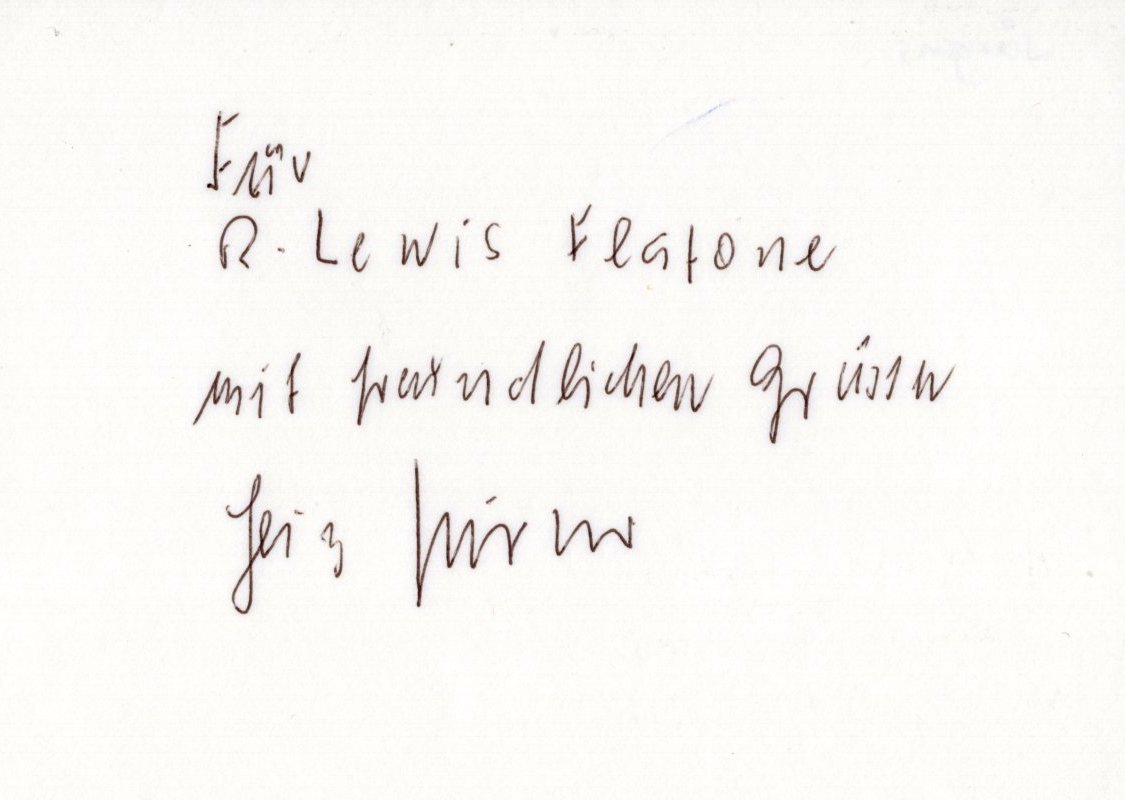 Für
R. Lewis Flatone
mit freundlichen Grüssen